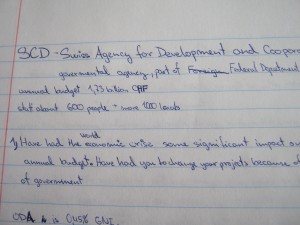 SCD - Swiss Agency for Development and Coopera
governmental agency, part of Foreign Federal Department
annual budget 1,73 billion CHF
staf about 600 people + more 1000 locals
world
1, Have had the economic crise some significant impact on
annual budget. Have had you to change your projects because of
of government
ODA is 0,45% GNI.